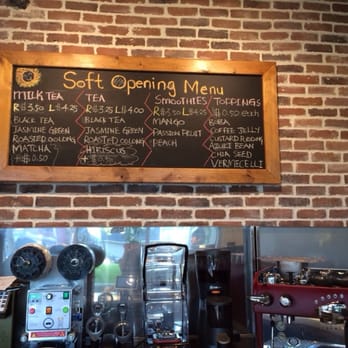 Soft Opening Menu
MILK TEA
R $3.50 L $4.25
BLACK TEA
JASMINE GREEN
ROASTED OOLONG
MATCHA
+$0.50
TEA
R $3.25 L $4.00
BLACK TEA
JASMINE GREEN
ROASTED OOLONG
HIBISCUS
+$0.50
SMOOTHIES
R $3.50 L $4.25
MANGO
PASSION FRUIT
PEACH
TOPPINGS
$0.50 each
BOBA
COFFEE JELLY
CUSTARD PUDDING
AZUKI BEAN
CHIA SEED
VERMICELLI